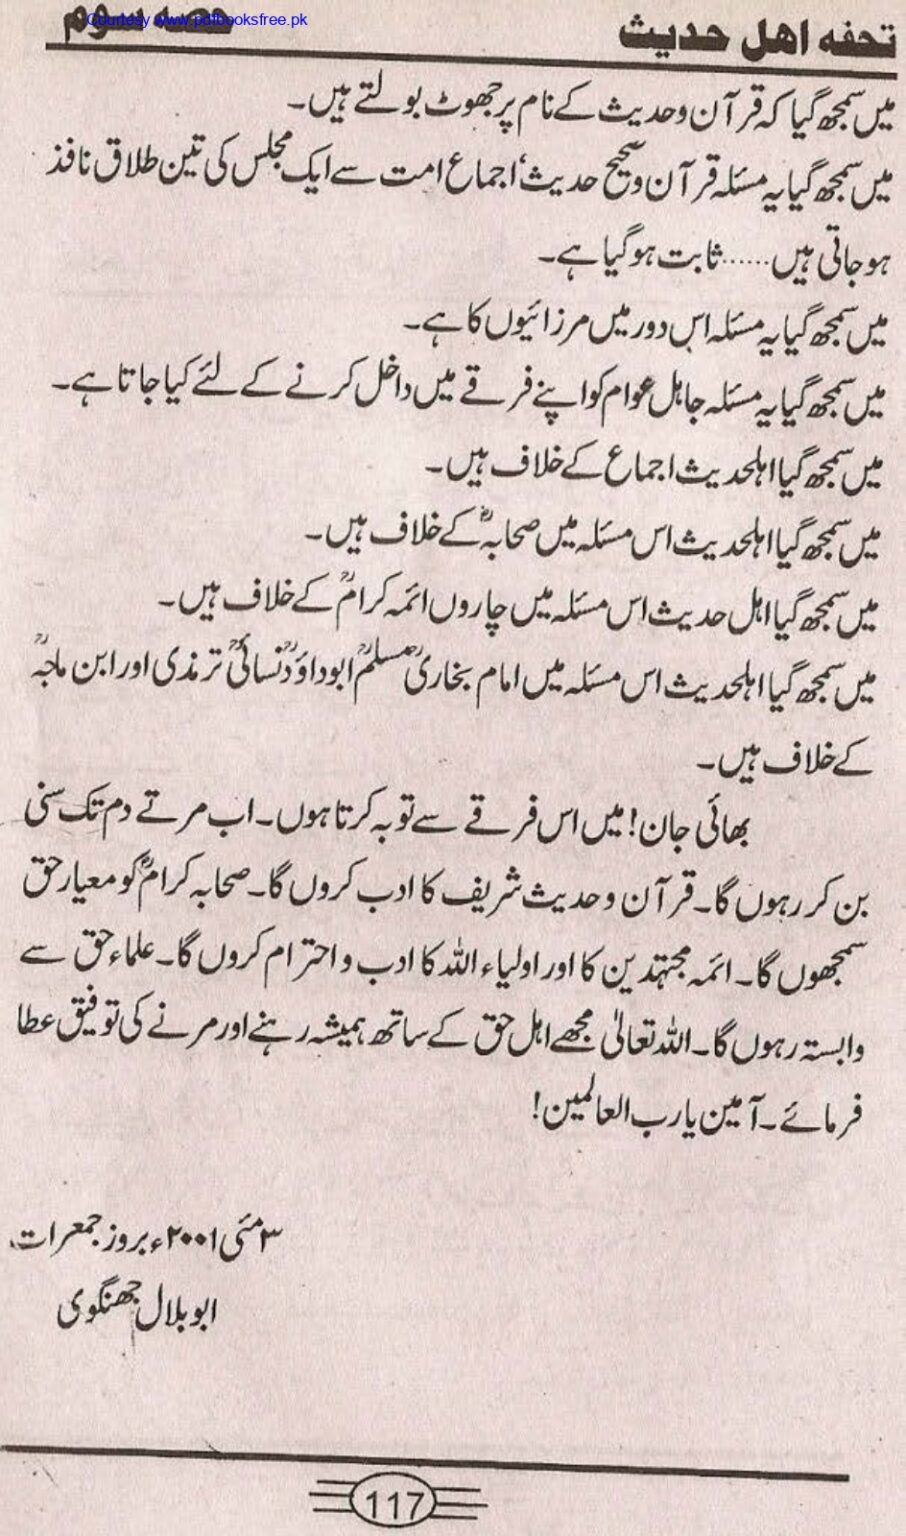 تحفہ اھل حدیث
حصہ سوم
Courtesy www.pdfbooksfree.pk
میں سمجھ گیا کہ قرآن وحدیث کے نام پر جھوٹ بولتے ہیں۔
میں سمجھ گیا یہ مسئلہ قرآن وصحیح حدیث، اجماع امت سے ایک مجلس کی تین طلاق نافذ
ہو جاتی ہیں...... ثابت ہو گیا ہے۔
میں سمجھ گیا یہ مسئلہ اس دور میں مرزائیوں کا ہے۔
میں سمجھ گیا یہ مسئلہ جاہل عوام کو اپنے فرقے میں داخل کرنے کے لئے کیا جاتا ہے۔
میں سمجھ گیا اہلحدیث اجماع کے خلاف ہیں۔
میں سمجھ گیا اہلحدیث اس مسئلہ میں صحابہؓ کے خلاف ہیں۔
میں سمجھ گیا اہل حدیث اس مسئلہ میں چاروں ائمہ کرامؒ کے خلاف ہیں۔
میں سمجھ گیا اہلحدیث اس مسئلہ میں امام بخاریؒ مسلمؒ ابوداؤدؒ نسائیؒ ترمذی اور ابن ماجہؒ
کے خلاف ہیں۔
بھائی جان! میں اس فرقے سے توبہ کرتا ہوں۔ اب مرتے دم تک سنی
بن کر رہوں گا۔ قرآن وحدیث شریف کا ادب کروں گا۔ صحابہ کرامؓ کو معیار حق
سمجھوں گا۔ ائمہ مجتہدین کا اور اولیاء اللہ کا ادب و احترام کروں گا۔ علماء حق سے
وابستہ رہوں گا۔ اللہ تعالیٰ مجھے اہل حق کے ساتھ ہمیشہ رہنے اور مرنے کی توفیق عطا
فرمائے۔ آمین یا رب العالمین!
۳ مئی ۲۰۰۱ء بروز جمعرات
ابو بلال جھنگوی
117